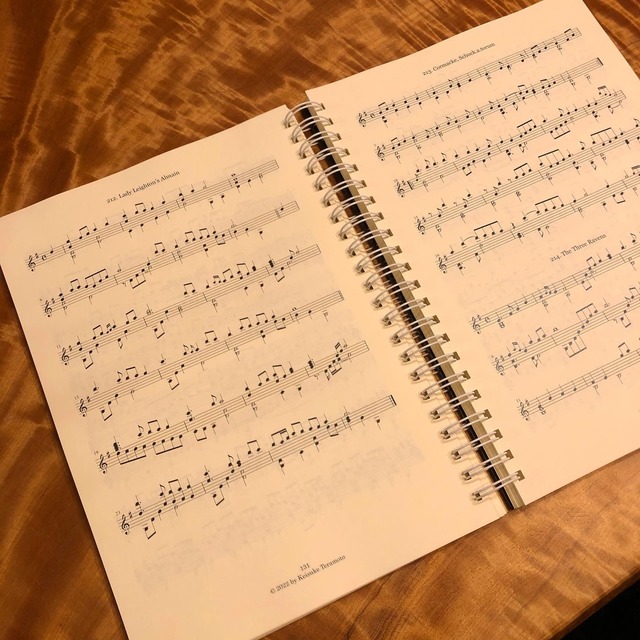 212. Lady Leighton's Almain
131
© 2022 by Keisuke Teramoto
213. Cormacke, Sehuek.a.torum
214. The Three Ravens